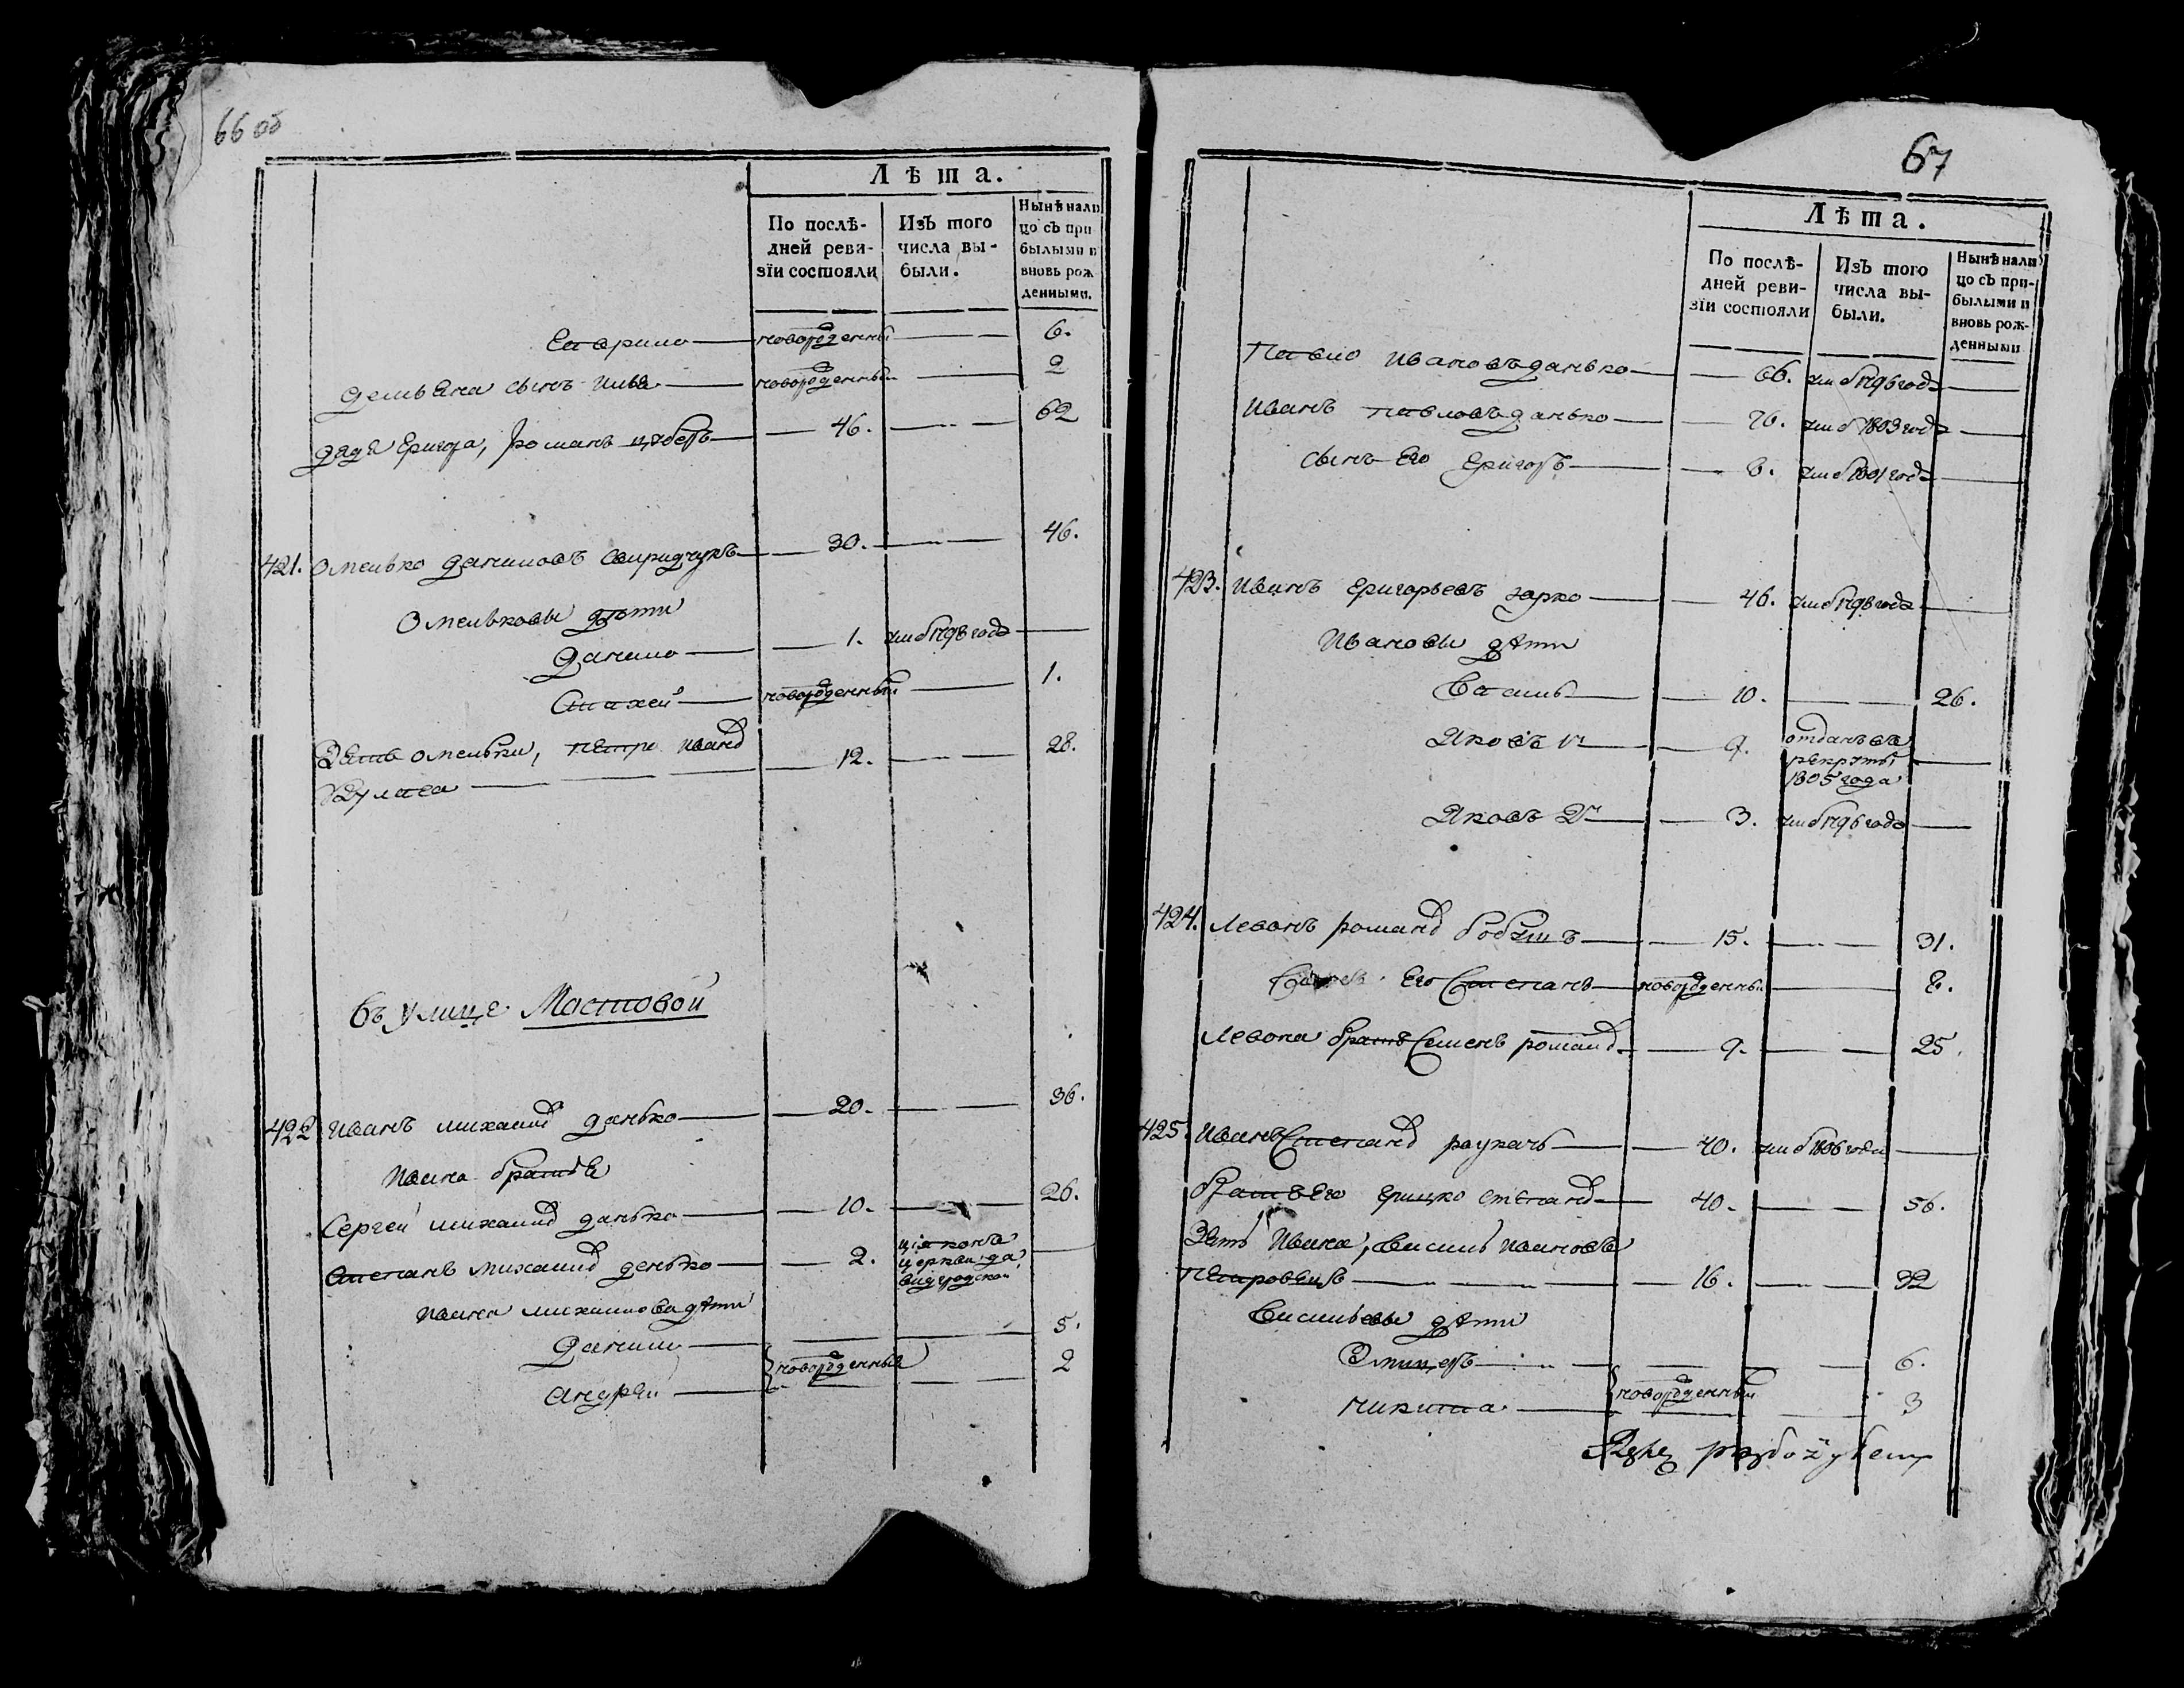 66 об
Лѣта.
По послѣдней ревизіи состояли
Изъ того числа выбыли.
Нынѣ налицо съ прибылыми и вновь рожденными.
Гаврило новорожденный 6.
Демьяна сынъ Илья новорожденный 2
Дядя Григора, Романъ 46. 62
421. Омелько Даниловъ Свиридчукъ 30. 46.
Омельковы дѣти
Данило 1. умеръ 1798 года
новорожденный 1.
Зять Омельки, Петро Иванов 12. 28.
Въ улице Мостовой
422 Иванъ Михайлов Данько 20. 36.
Ивана братья
Сергей Михайлов Данько 10. 26.
Степанъ Михайлов Данько 2.
церкви
Ивана Михайлова дѣти
Данило 5.
новорожденныя
Андрей 2
67
Лѣта.
По послѣдней ревизіи состояли
Изъ того числа выбыли.
Нынѣ налицо съ прибылыми и вновь рожденными
Павло Ивановъ Данько 66. умеръ 1796 года
Иванъ Павловъ Данько 26. умеръ 1803 года
сынъ Его Григоръ 8. умеръ 1801 года
423. Иванъ Григорьевъ Зарко 46. умеръ 1798 года
Ивановы дѣти
Василь 10. 26.
Яковъ 1й 9. отданъ въ
рекруты
1805 года
Яковъ 2й 3. умеръ 1796 года
424. Левонъ Романов 15. 31.
Сынъ Его Степанъ новорожденный 8.
Левона братъ Семенъ Романов 9. 25.
425. Иванъ Степанов 40. умеръ 1806 года
братъ Его Грицко Степанов 40. 56.
Зять Ивана, Василь Ивановъ
16. 32
Васильевы дѣти
6.
новорожденныи
Никита 3